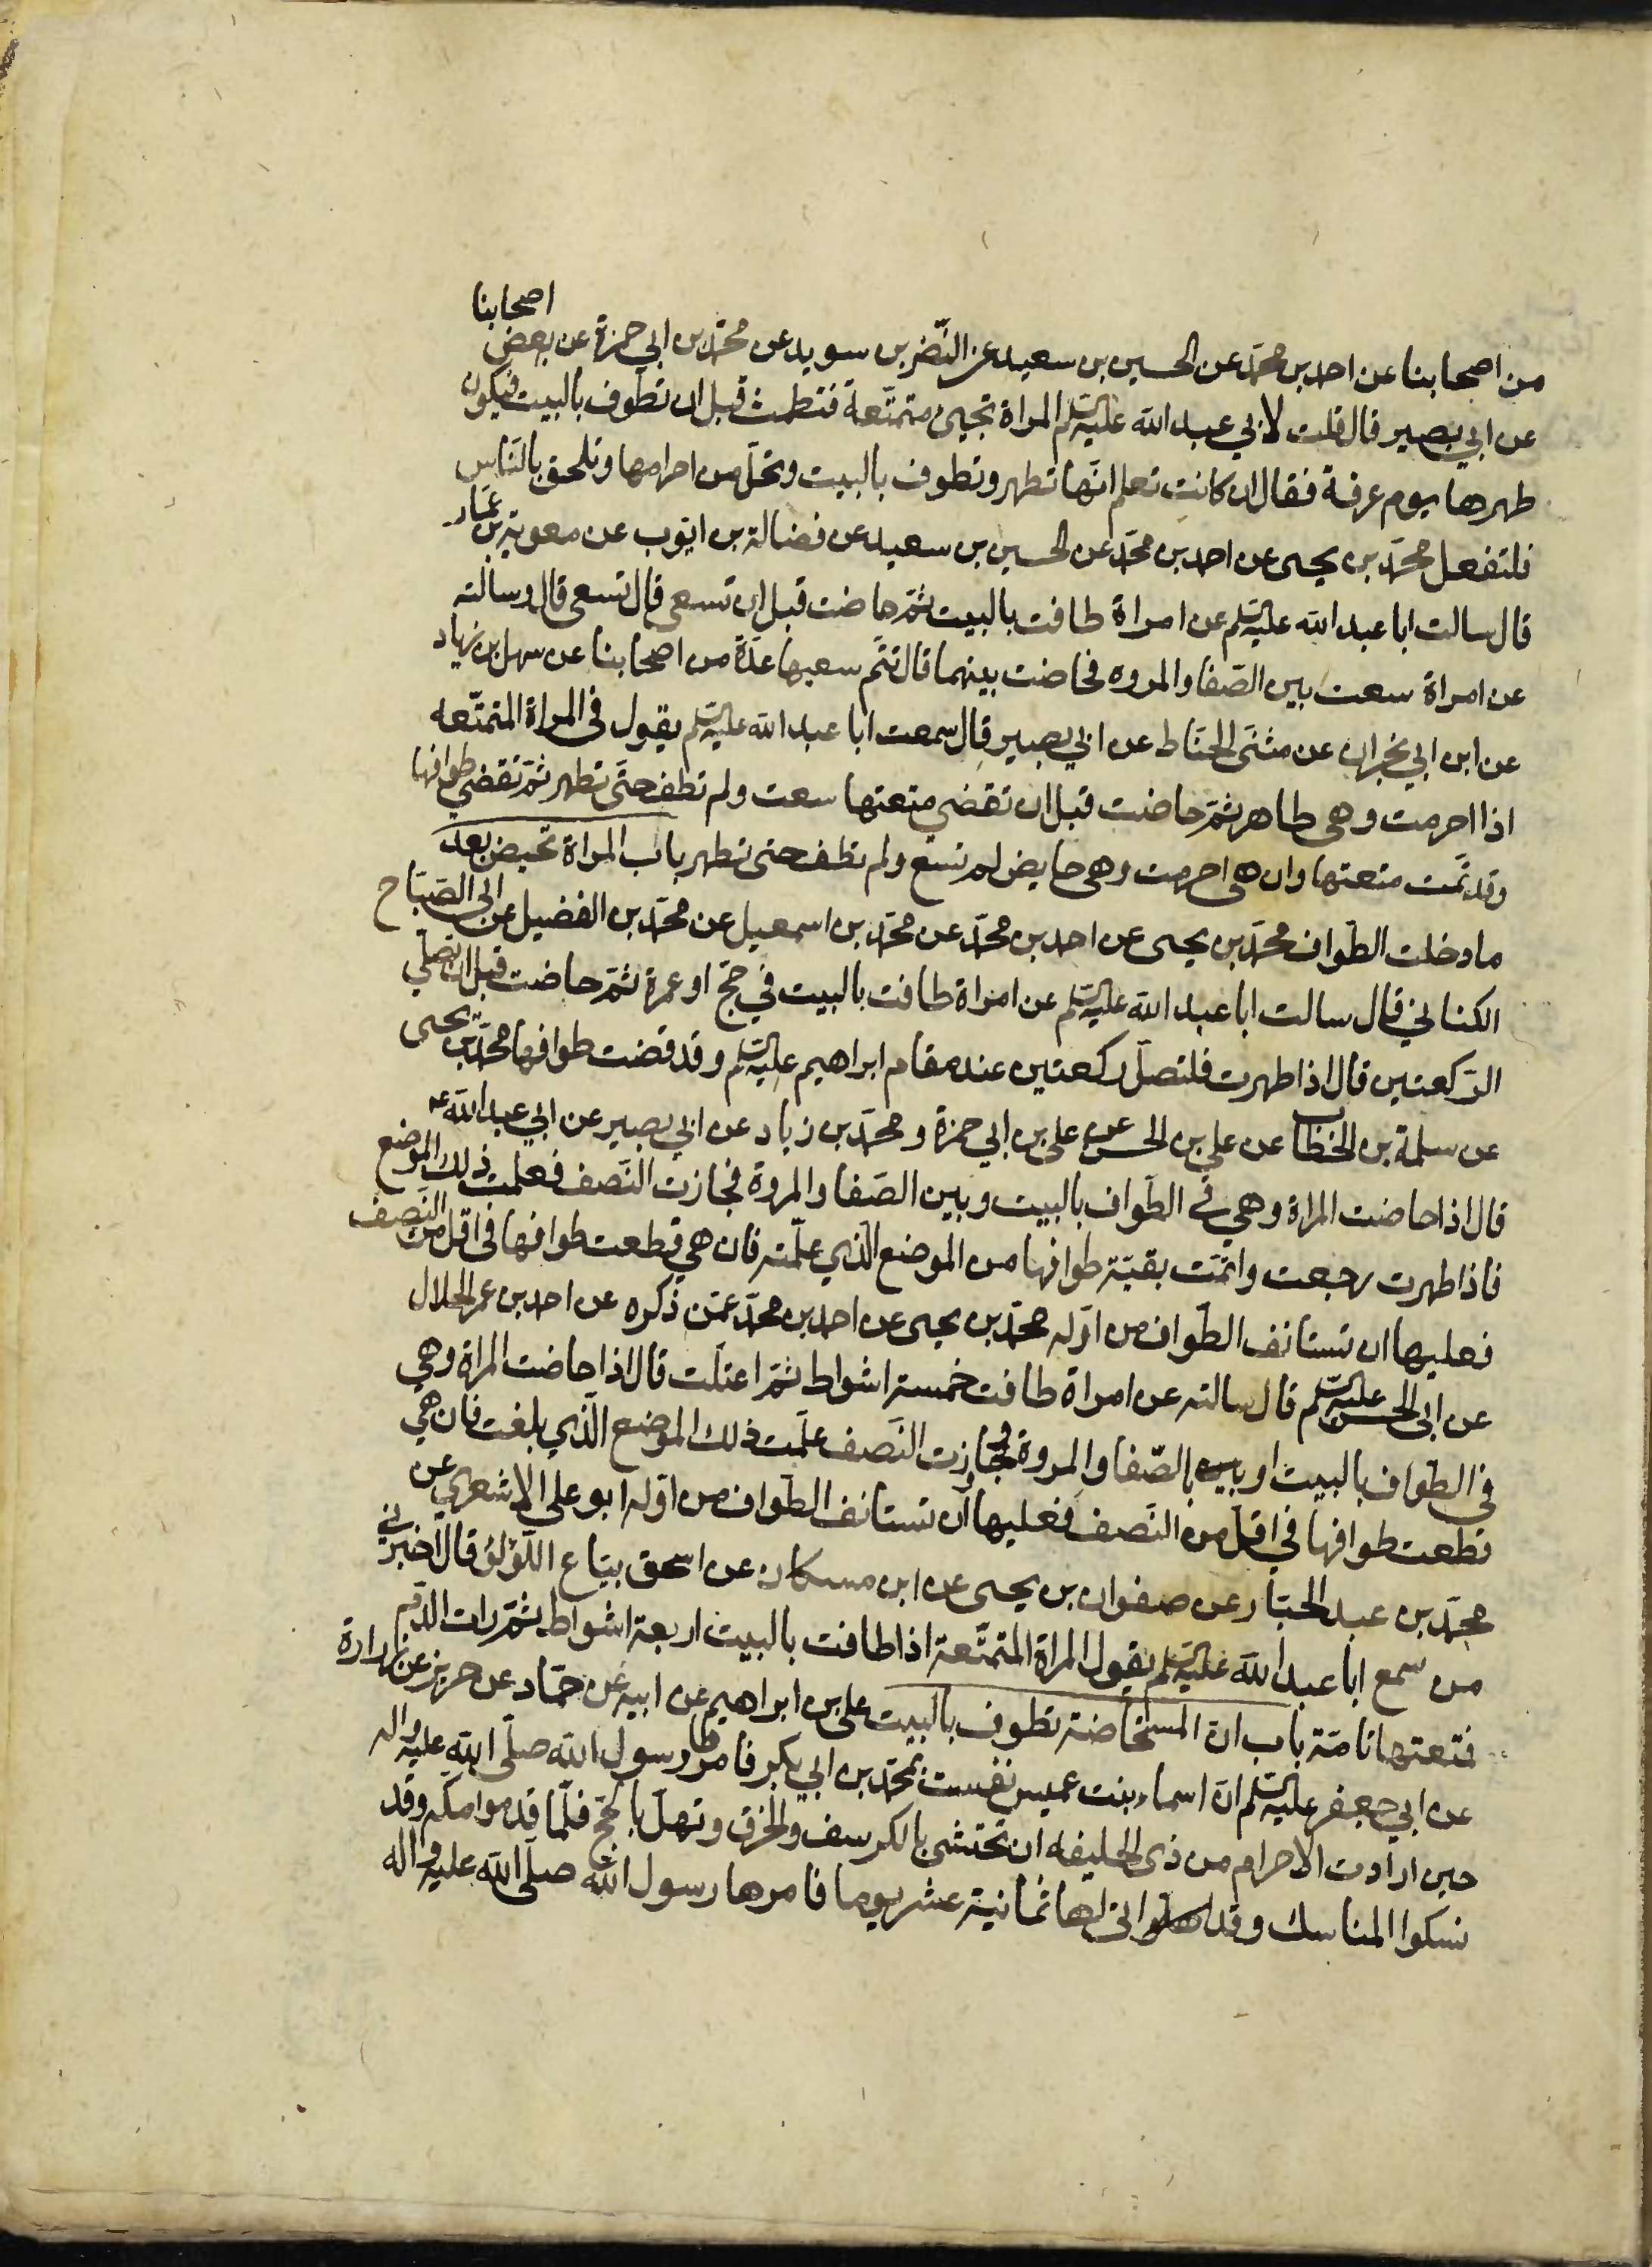 من اصحابنا عن احمد بن محمد عن الحسين بن سعيد عن النّضر بن سويد عن محمّد بن ابي حمزة عن بعض اصحابنا
عن ابي بصير قال قلت لابي عبد الله عليه السلم المراة تجيئ متمتّعة فتطمث قبل ان تطوف بالبيت فيكون
طهرها يوم عرفة فقال ان كانت تعلم انّها تطهر وتطوف بالبيت وتحلّ من احرامها وتلحق بالنّاس
فلتفعل محمّد بن يحيى عن احمد بن محمّد عن الحسين بن سعيد عن فضالة بن ايّوب عن معوية بن عمّار
قال سالت ابا عبد الله عليه السلم عن امراة طافت بالبيت ثمّ حاضت قبل ان تسعى قال تسعى قال وسالته
عن امراة سعت بين الصّفا والمروه فحاضت بينهما قال تتم سعيها عدّة من اصحابنا عن سهل بن زياد
عن ابن ابي نجران عن مثنى الحنّاط عن ابي بصير قال سمعت ابا عبد الله عليه السلم يقول في المراة المتمتّعه
اذا احرمت وهى طاهر ثمّ حاضت قبل ان تقضي متعتها سعت ولم تطف حتّى تطهر ثمّ تقضي طوافها
وقد تمّت متعتها وان هى احرمت وهى حايض لم تسع ولم تطف حتى تطهر باب المراة تحيض بعد
ما دخلت الطّواف محمّد بن يحيى عن احمد بن محمّد عن محمّد بن اسمعيل عن محمّد بن الفضيل عن ابي الصّبّاح
الكناني قال سالت ابا عبد الله عليه السلم عن امراة طافت بالبيت في حجّ او عمرة ثمّ حاضت قبل ان تصلّي
الرّكعتين قال اذا طهرت فلتصلّ ركعتين عند مقام ابراهيم عليه السلم وقد قضت طوافها محمّد بن يحيى
عن سلمة بن الخطّاب عن علي بن الحسن عن علي بن ابي حمزة ومحمّد بن زياد عن ابي بصير عن ابي عبد الله ع
قال اذا حاضت المراة وهي في الطّواف بالبيت وبين الصّفا والمروة فجازت النّصف فعلمت ذلك الموضع
فاذا طهرت رجعت واتمّت بقيّة طوافها من الموضع الّذي علّمته فان هي قطعت طوافها في اقل من النّصف
فعليها ان تستانف الطّواف من اوّله محمّد بن يحيى عن احمد بن محمّد عمّن ذكره عن احمد بن عمر الحلال
عن ابي الحسن عليه السلم قال سالته عن امراة طافت خمسة اشواط ثمّ اعتلّت قال اذا حاضت المراة وهي
في الطّواف بالبيت او بالصّفا والمروة فجاوزت النّصف علّمت ذلك الموضع الّذي بلغت فان هي
قطعت طوافها في اقلّ من النّصف فعليها ان تستانف الطّواف من اوّله ابو علي الاشعري عن
محمّد بن عبد الجبّار عن صفوان بن يحيى عن ابن مسكان عن اسحق بيّاع اللّؤلؤ قال اخبرني
من سمع ابا عبد الله عليه السلم يقول المراة المتمتّعة اذا طافت بالبيت اربعة اشواط ثمّ رات الدّم
فمتعتها تامّة باب ان المستحاضة تطوف بالبيت علي بن ابراهيم عن ابيه عن حمّاد عن حريز عن زرارة
عن ابي جعفر عليه السلم انّ اسماء بنت عميس نفست بمحمّد بن ابي بكر فامرها رسول الله صلّى الله عليه واله
حين ارادت الاحرام من ذى الحليفه ان تحتشى بالكرسف والخرق وتهلّ بالحجّ فلمّا قدموا مكّه وقد
نسكوا المناسك وقد اتى لها ثمانية عشر يوما فامرها رسول الله صلّى الله عليه واله